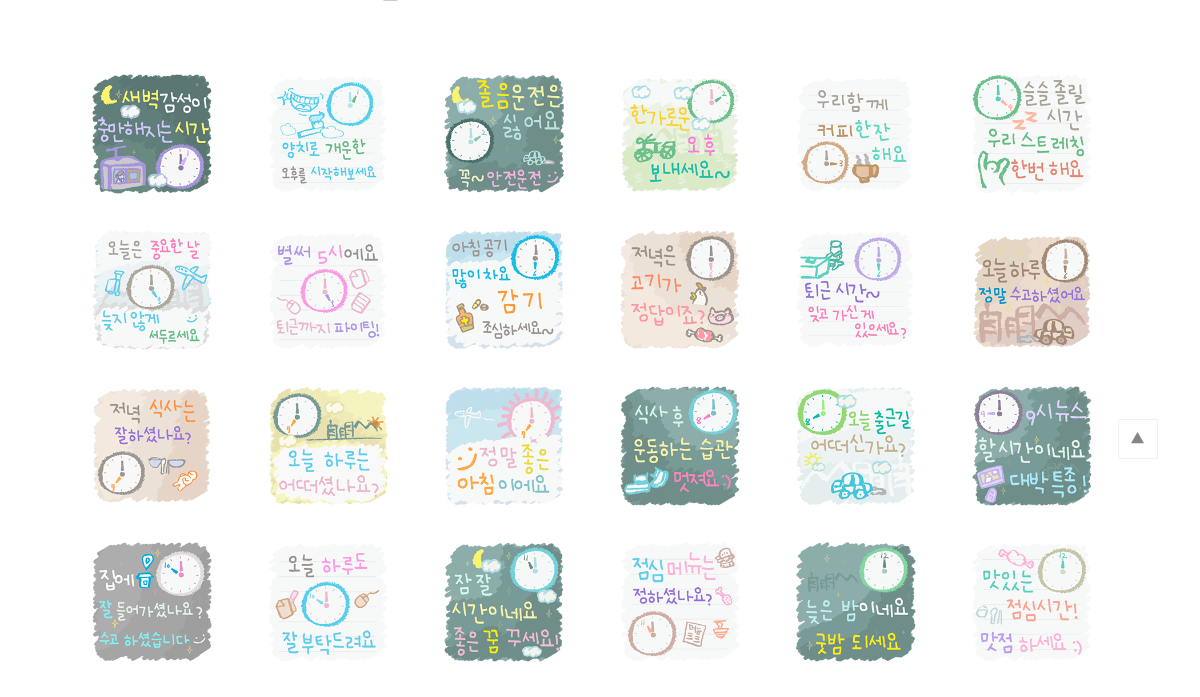 새벽감성이
충만해지는 시간
양치로 개운한
오후를 시작해보세요
졸음운전은
싫어요
꼭~ 안전운전 :)
한가로운
오후
보내세요~
우리함께
커피한잔
해요
슬슬 졸릴
시간
ZZ
우리 스트레칭
한번 해요
오늘은 중요한 날
늦지 않게
서두르세요
벌써 5시에요
퇴근까지 파이팅!
아침공기
많이 차요
감기
조심하세요~
저녁은
고기가
정답이죠?
퇴근 시간~
잊고 가신게
있으세요?
오늘하루
정말 수고하셨어요
저녁 식사는
잘하셨나요?
오늘 하루는
어떠셨나요?
정말 좋은
아침이에요
식사 후
운동하는 습관
멋져요 :)
오늘 출근길
어떠신가요?
9시 뉴스
할시간이네요
대박 특종!
집에
잘 들어가셨나요?
수고 하셨습니다
오늘 하루도
잘 부탁드려요
잠잘
시간이네요
좋은 꿈 꾸세요!
점심 메뉴는
정하셨나요?
늦은 밤이네요
굿밤 되세요
맛있는
점심시간!
맛점 하세요 :)